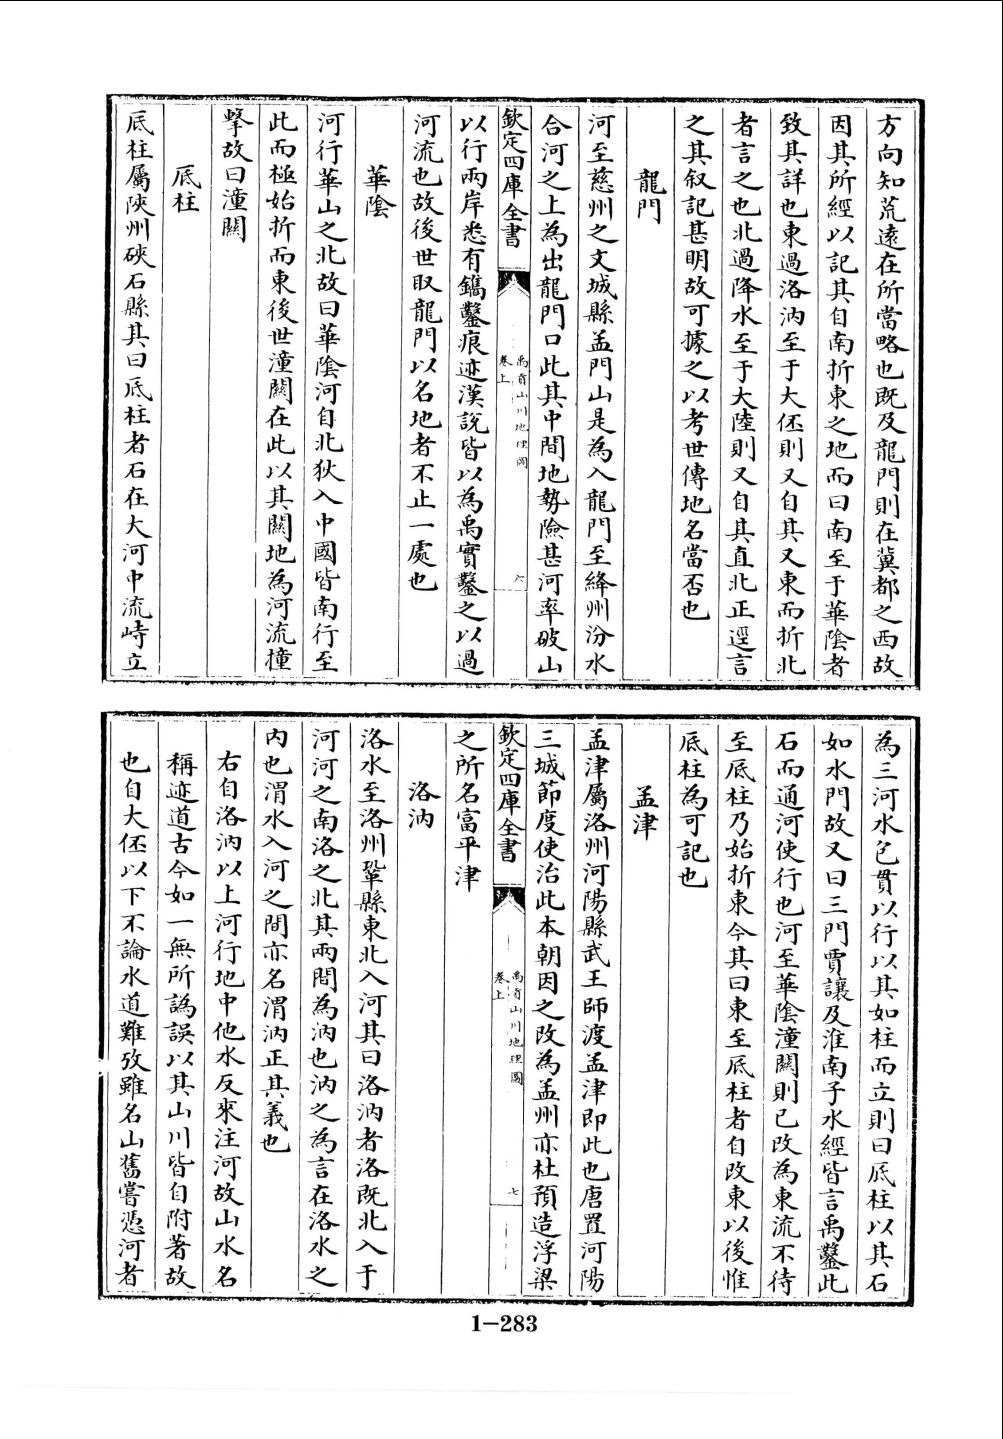 方向知荒逺在所當略也既及龍門則在冀都之西故
因其所經以記其自南折東之地而曰南至于華隂者
致其詳也東過洛汭至于大伾則又自其又東而折北
者言之也北過降水至于大陸則又自其直北正逕言
之其叙記甚明故可據之以考世傳地名當否也
龍門
河至慈州之文城縣孟門山是為入龍門至絳州汾水
合河之上為出龍門口此其中間地勢險甚河率破山
欽定四庫全書
禹貢山川地理圖
卷上
六
以行兩岸悉有鐫鑿痕迹漢說皆以為禹實鑿之以過
河流也故後世取龍門以名地者不止一處也
華隂
河行華山之北故曰華隂河自北狄入中國皆南行至
此而極始折而東後世潼闗在此以其闗地為河流撞
擊故曰潼闗
底柱
底柱屬陜州硤石縣其曰底柱者石在大河中流峙立
為三河水包貫以行以其如柱而立則曰底柱以其石
如水門故又曰三門賈讓及淮南子水經皆言禹鑿此
石而通河使行也河至華隂潼闗則已改為東流不待
至底柱乃始折東今其曰東至底柱者自改東以後惟
底柱為可記也
孟津
孟津屬洛州河陽縣武王師渡孟津即此也唐置河陽
三城節度使治此本朝因之改為孟州亦杜預造浮梁
欽定四庫全書
禹貢山川地理圖
卷上
七
之所名富平津
洛汭
洛水至洛州鞏縣東北入河其曰洛汭者洛既北入于
河河之南洛之北其兩間為汭也汭之為言在洛水之
内也渭水入河之間亦名渭汭正其義也
右自洛汭以上河行地中他水反來注河故山水名
稱迹道古今如一無所譌誤以其山川皆自附著故
也自大伾以下不論水道難攷雖名山舊嘗憑河者
1-283